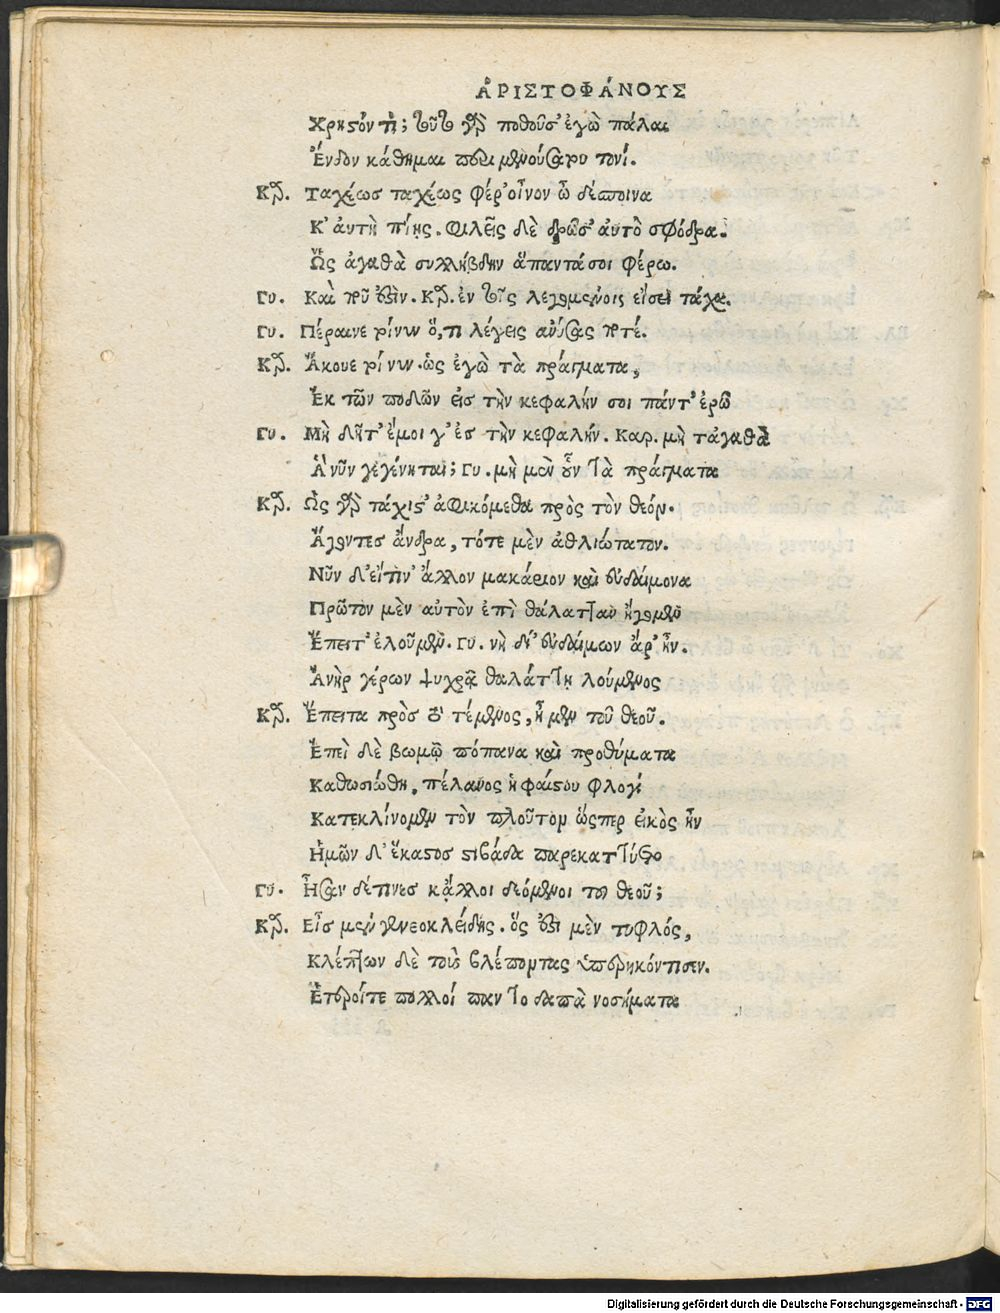 ἈΡΙΣΤΟΦΆΝΟΥΣ
Χρηστόν τι; τοῦτο γὰρ ποθοῦσ' ἐγὼ πάλαι
Ἔνδον κάθημαι περιμένουσα τουτονί.
Καρ. Ταχέως ταχέως φέρ' οἶνον ὦ δέσποινα
Κ' ἀυτὴ πίῃς. φιλεῖς δὲ δρῶσ' ἀυτὸ σφόδρα.
Ὡς ἀγαθὰ συλλήβδην ἅπαντά σοι φέρω.
Γυ. Καὶ ποῦ 'στιν. Καρ. ἐν τοῖς λεγομένοις εἴσει τάχα.
Γυ. Πέραινε τοίνυν ὅ,τι λέγεις ἀνύσας ποτέ.
Καρ. Ἄκουε τοίνυν. ὡς ἐγὼ τὰ πράγματα,
Ἐκ τῶν ποδῶν εἰς τὴν κεφαλήν σοι πάντ' ἐρῶ
Γυ. Μὴ δῆτ' ἔμοι γ' ἐς τὴν κεφαλήν. Καρ. μὴ τἀγαθὰ
Ἃ νῦν γεγένηται; Γυ. μὴ μὲν οὖν τὰ πράγματα
Καρ. Ὡς γὰρ τάχιστ' ἀφικόμεθα πρὸς τὸν θεόν.
Ἄγοντες ἄνδρα, τότε μὲν ἀθλιώτατον.
Νῦν δ' εἴτιν' ἄλλον μακάριον καὶ εὐδαίμονα
Πρῶτον μὲν αὐτὸν ἐπὶ θάλατταν ἤγομεν
Ἔπειτ' ἐλοῦμεν. Γυ. νὴ δί' εὐδαίμων ἄρ' ἦν.
Ἀνὴρ γέρων ψυχρᾷ θαλάττῃ λούμενος
Καρ. Ἔπειτα πρὸς τὸ τέμενος, ᾖμεν τοῦ θεοῦ.
Ἐπεὶ δὲ βωμῷ πόπανα καὶ προθύματα
Καθωσιώθη, πέλανος ἡφαίστου φλογί
Κατεκλίνομεν τὸν πλοῦτον ὥσπερ εἰκὸς ἦν
Ἡμῶν δ' ἕκαστος στιβάδα παρεκαττύετο
Γυ. Ἦσαν δέτινες κἄλλοι δεόμενοι τοῦ θεοῦ;
Καρ. Εἷς μέν γε νεοκλείδης. ὅς ἐστι μὲν τυφλός,
Κλέπτων δὲ τοὺς βλέποντας ὑπερηκόντισεν.
Ἕτεροίτε πολλοί παντοδαπὰ νοσήματα
Digitalisierung gefördert durch die Deutsche Forschungsgemeinschaft - DFG